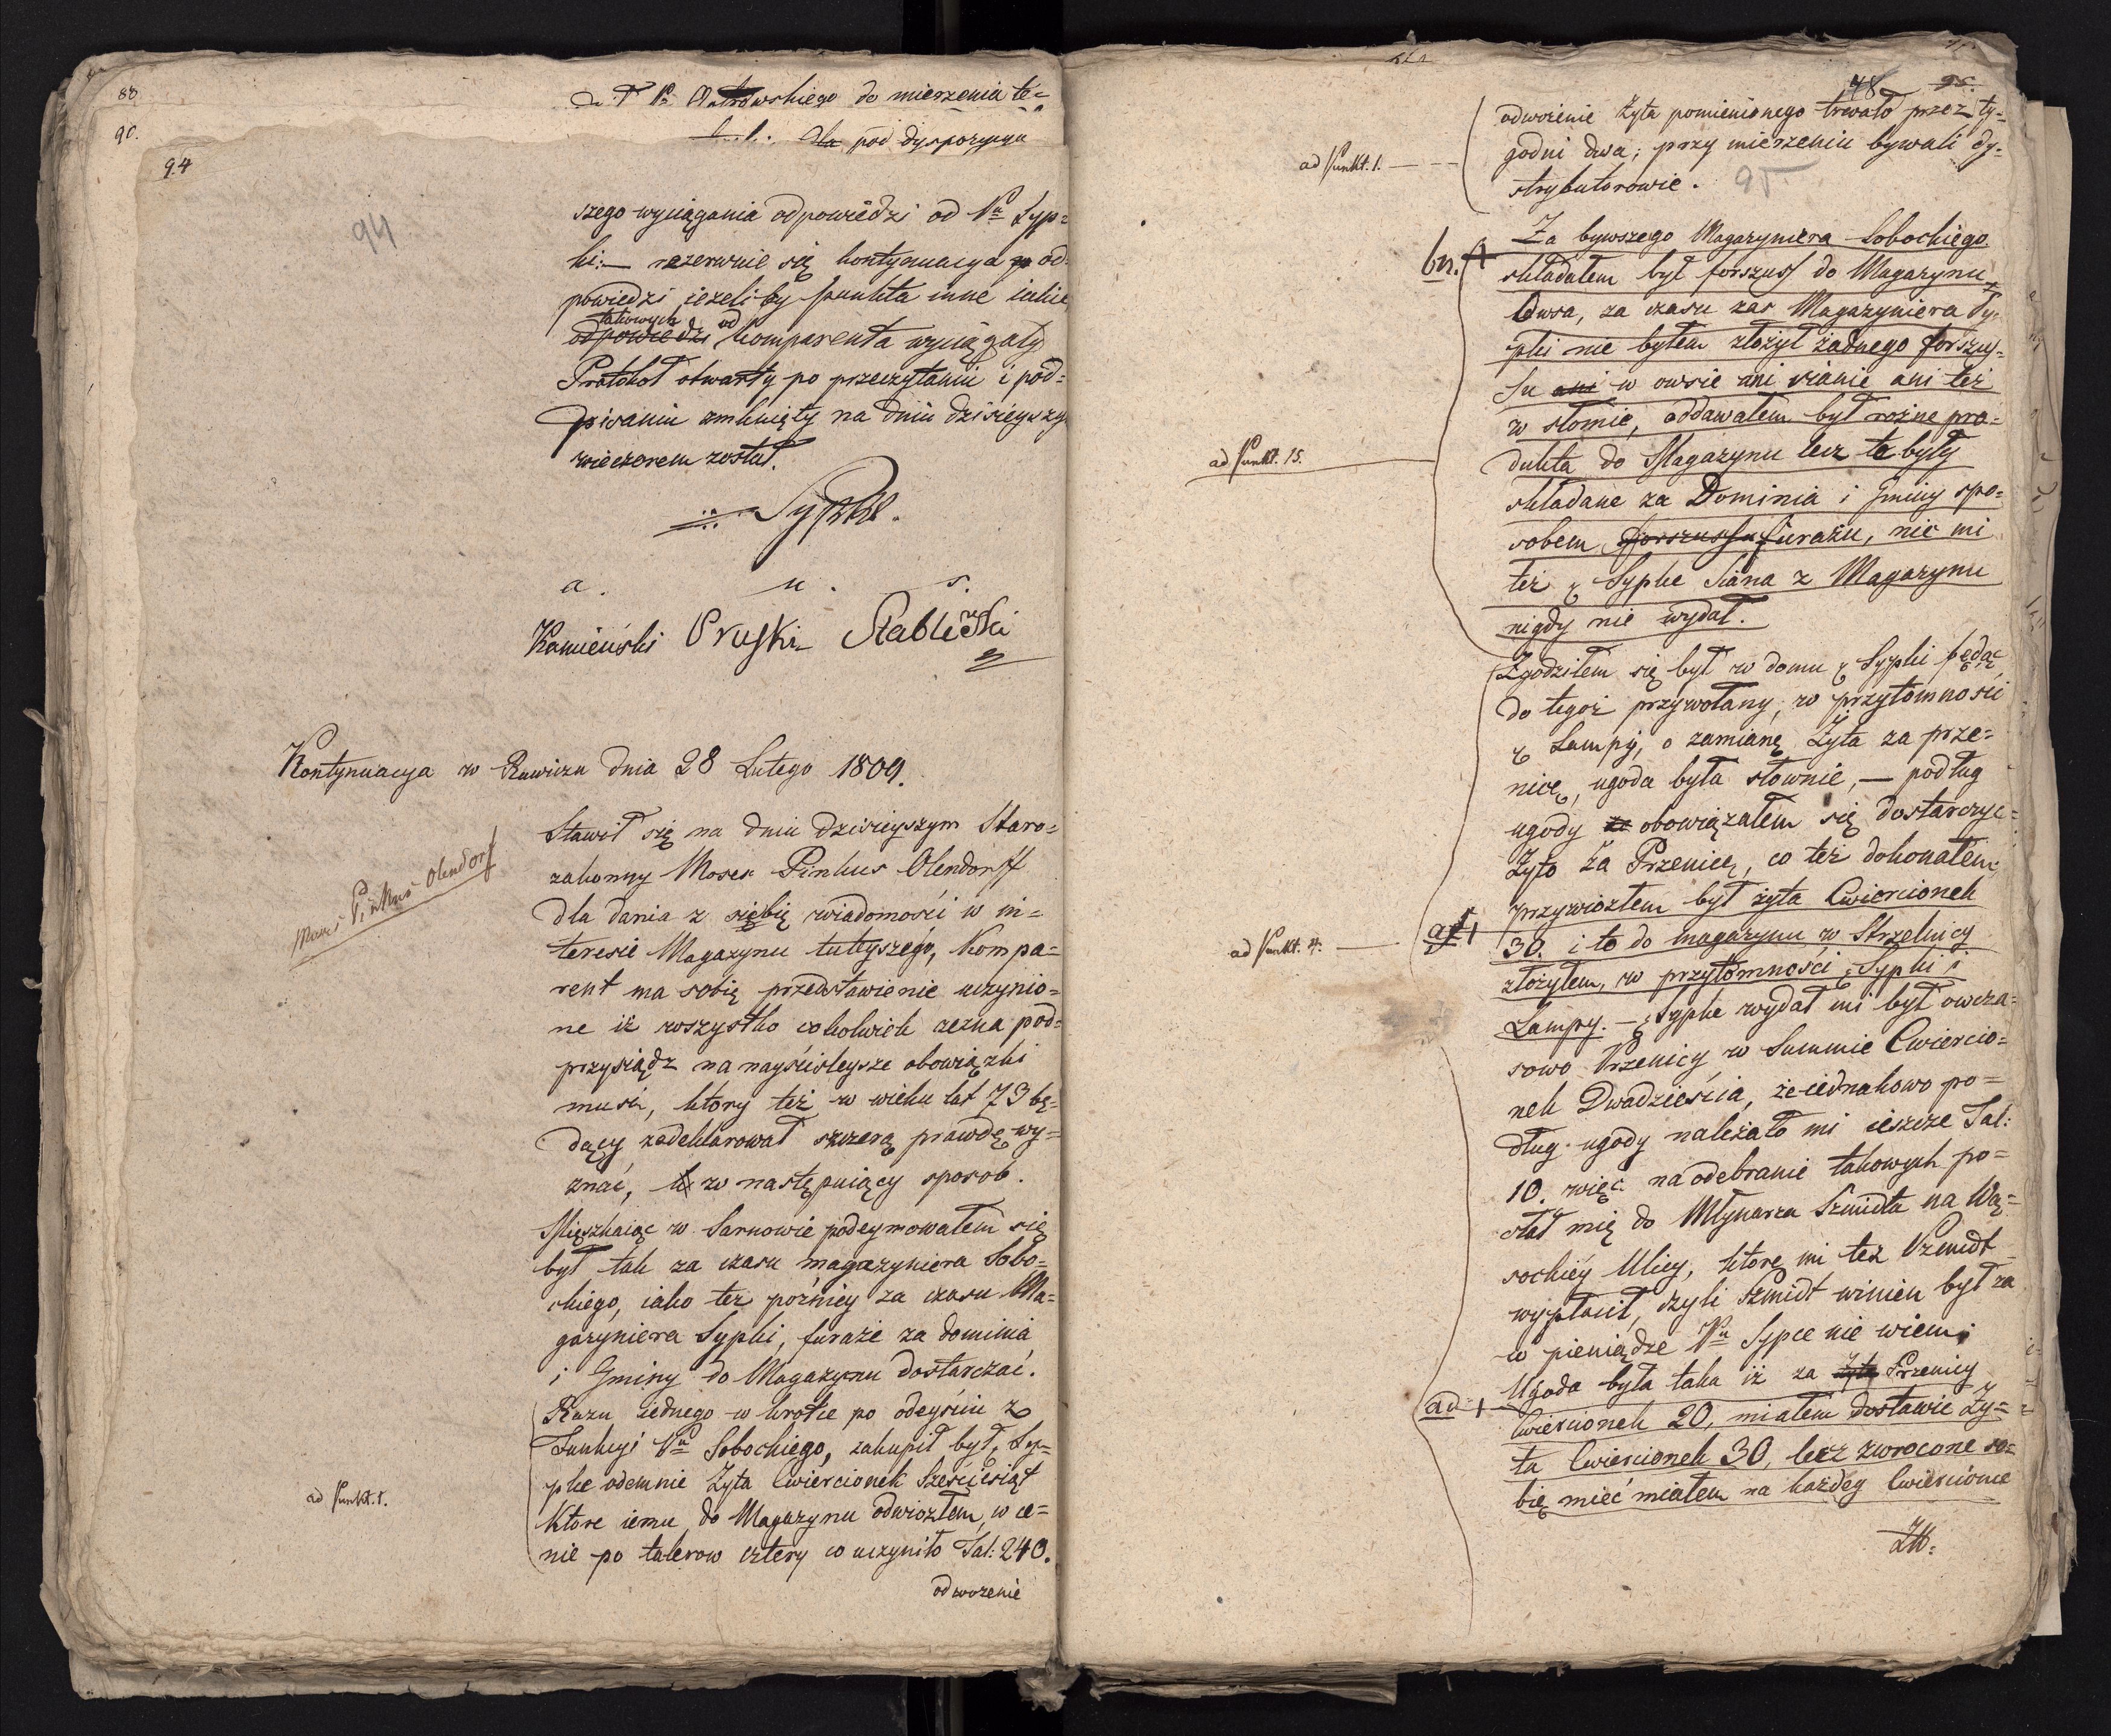 88
90.
94
94
Pa Ostrowskiego do mierzenia te=
pod dyspozycyą
szego wyciągania odpowiedzi od Pa Syp=
ki:— rezerwuie się kontynuacya od
powiedzi ieżeliby punkta inne iakie
takowych od
odpowiedzi komparenta wyciągały
Protokoł otwarty po przeczytaniu i pod=
pisaniu zmknięty na dniu dzisieyszy
wieczorem został.
Sypke.
a. u. s.
Kamieński Pruski Stablewski
Kontynuacya w Rawiczu dnia 28 Lutego 1809.
Stawił się na dniu dzisieyszym Staro=
zakonny Moses Pinkus Olendorff
Moses Pinkus Olendorf
dla dania z siębię wiadomości w in=
teresie Magazynu tuteyszego, Kompa=
rent ma sobię przedstawienie uczynio=
ne iż wszystko cokolwiek zezna pod=
przysiądz na nayściśleysze obowiązki
musi, ktory też w wieku lat 73 bę=
dący zadeklarował szczerą prawdę wy=
znać, w następuiący sposob.
Mięszkaiąc w Sarnowie podeymowałem się
był tak za czasu magazyniera Sobo=
ckiego, iako też pozniey za czasu Ma=
gazyniera Sypki, furaże za dominia
i Gminy do Magazynu dostarczać.
Razu iednego w krotce po odeyściu z
Funkcyi Pa Sobockiego, zakupił był, Sy=
pke odemnie Żyta Cwiercionek Sześcdziesiąt
Ktore iemu do Magazynu odwiozłem, w ce=
ad Punkt. 1.
nie po talerow cztery co uczyniło Tal: 240.
odwozenie
48 95.
odwożenie Żyta pomienionego trwało przez ty=
godni dwa; przy mierzeniu bywali dy=
ad Punkt. 1.
strybutorowie. 95
Za bywszego Magazyniera Sobockiego
bn.
składałem był forszuss do Magazynu
Owsa, za czasu zas Magazyniera Sy=
pki nie byłem złożył żadnego forszus=
su ani w owsie ani sianie ani też
w słomie, oddawałem był rożne pro=
dukta do Magazynu lecz te były
ad Punkt. 15.
składane za Dominia i Gminy spo=
sobem forszussu furażu, nie mi
też Sypke Siana z Magazynu
nigdy nie wydał.
Zgodziłem się był w domu Sypki będąc
do tegoż przywołany, w przytomności
Lampy, o zamianę Żyta za prze=
nicę, ugoda była słownie, — podług
ugody obowiązałem się dostarczyc
Żyto za Przenicę, co też dokonałem
przywiozłem był żyta Cwiercionek
30. i to do magazynu w Strzelnicy
ad Punkt. 4.
złożyłem, w przytomności Sypki i
Lampy. — Sypke wydał mi był owcza=
sowo Przenicy w Summie Cwiercio=
nek Dwadzieścia, że iednakowo po=
dług ugody należało mi ieszcze Tal:
10. więc na odebranie takowych po=
słał mię do Młynarza Szmidta na Wą=
sockiéy Ulicy, ktore mi też Szmidt
wypłacił, czyli Szmidt winien był za
co pieniądze Pu Sypce nie wiem;
Ugoda była taka iż za Żyta Przenicy
ad
Cwiercionek 20, miałem dostawic Ży=
ta Cwiercionek 30, lecz zwrocone so=
bię mieć miałem na każdey Cwiercionce